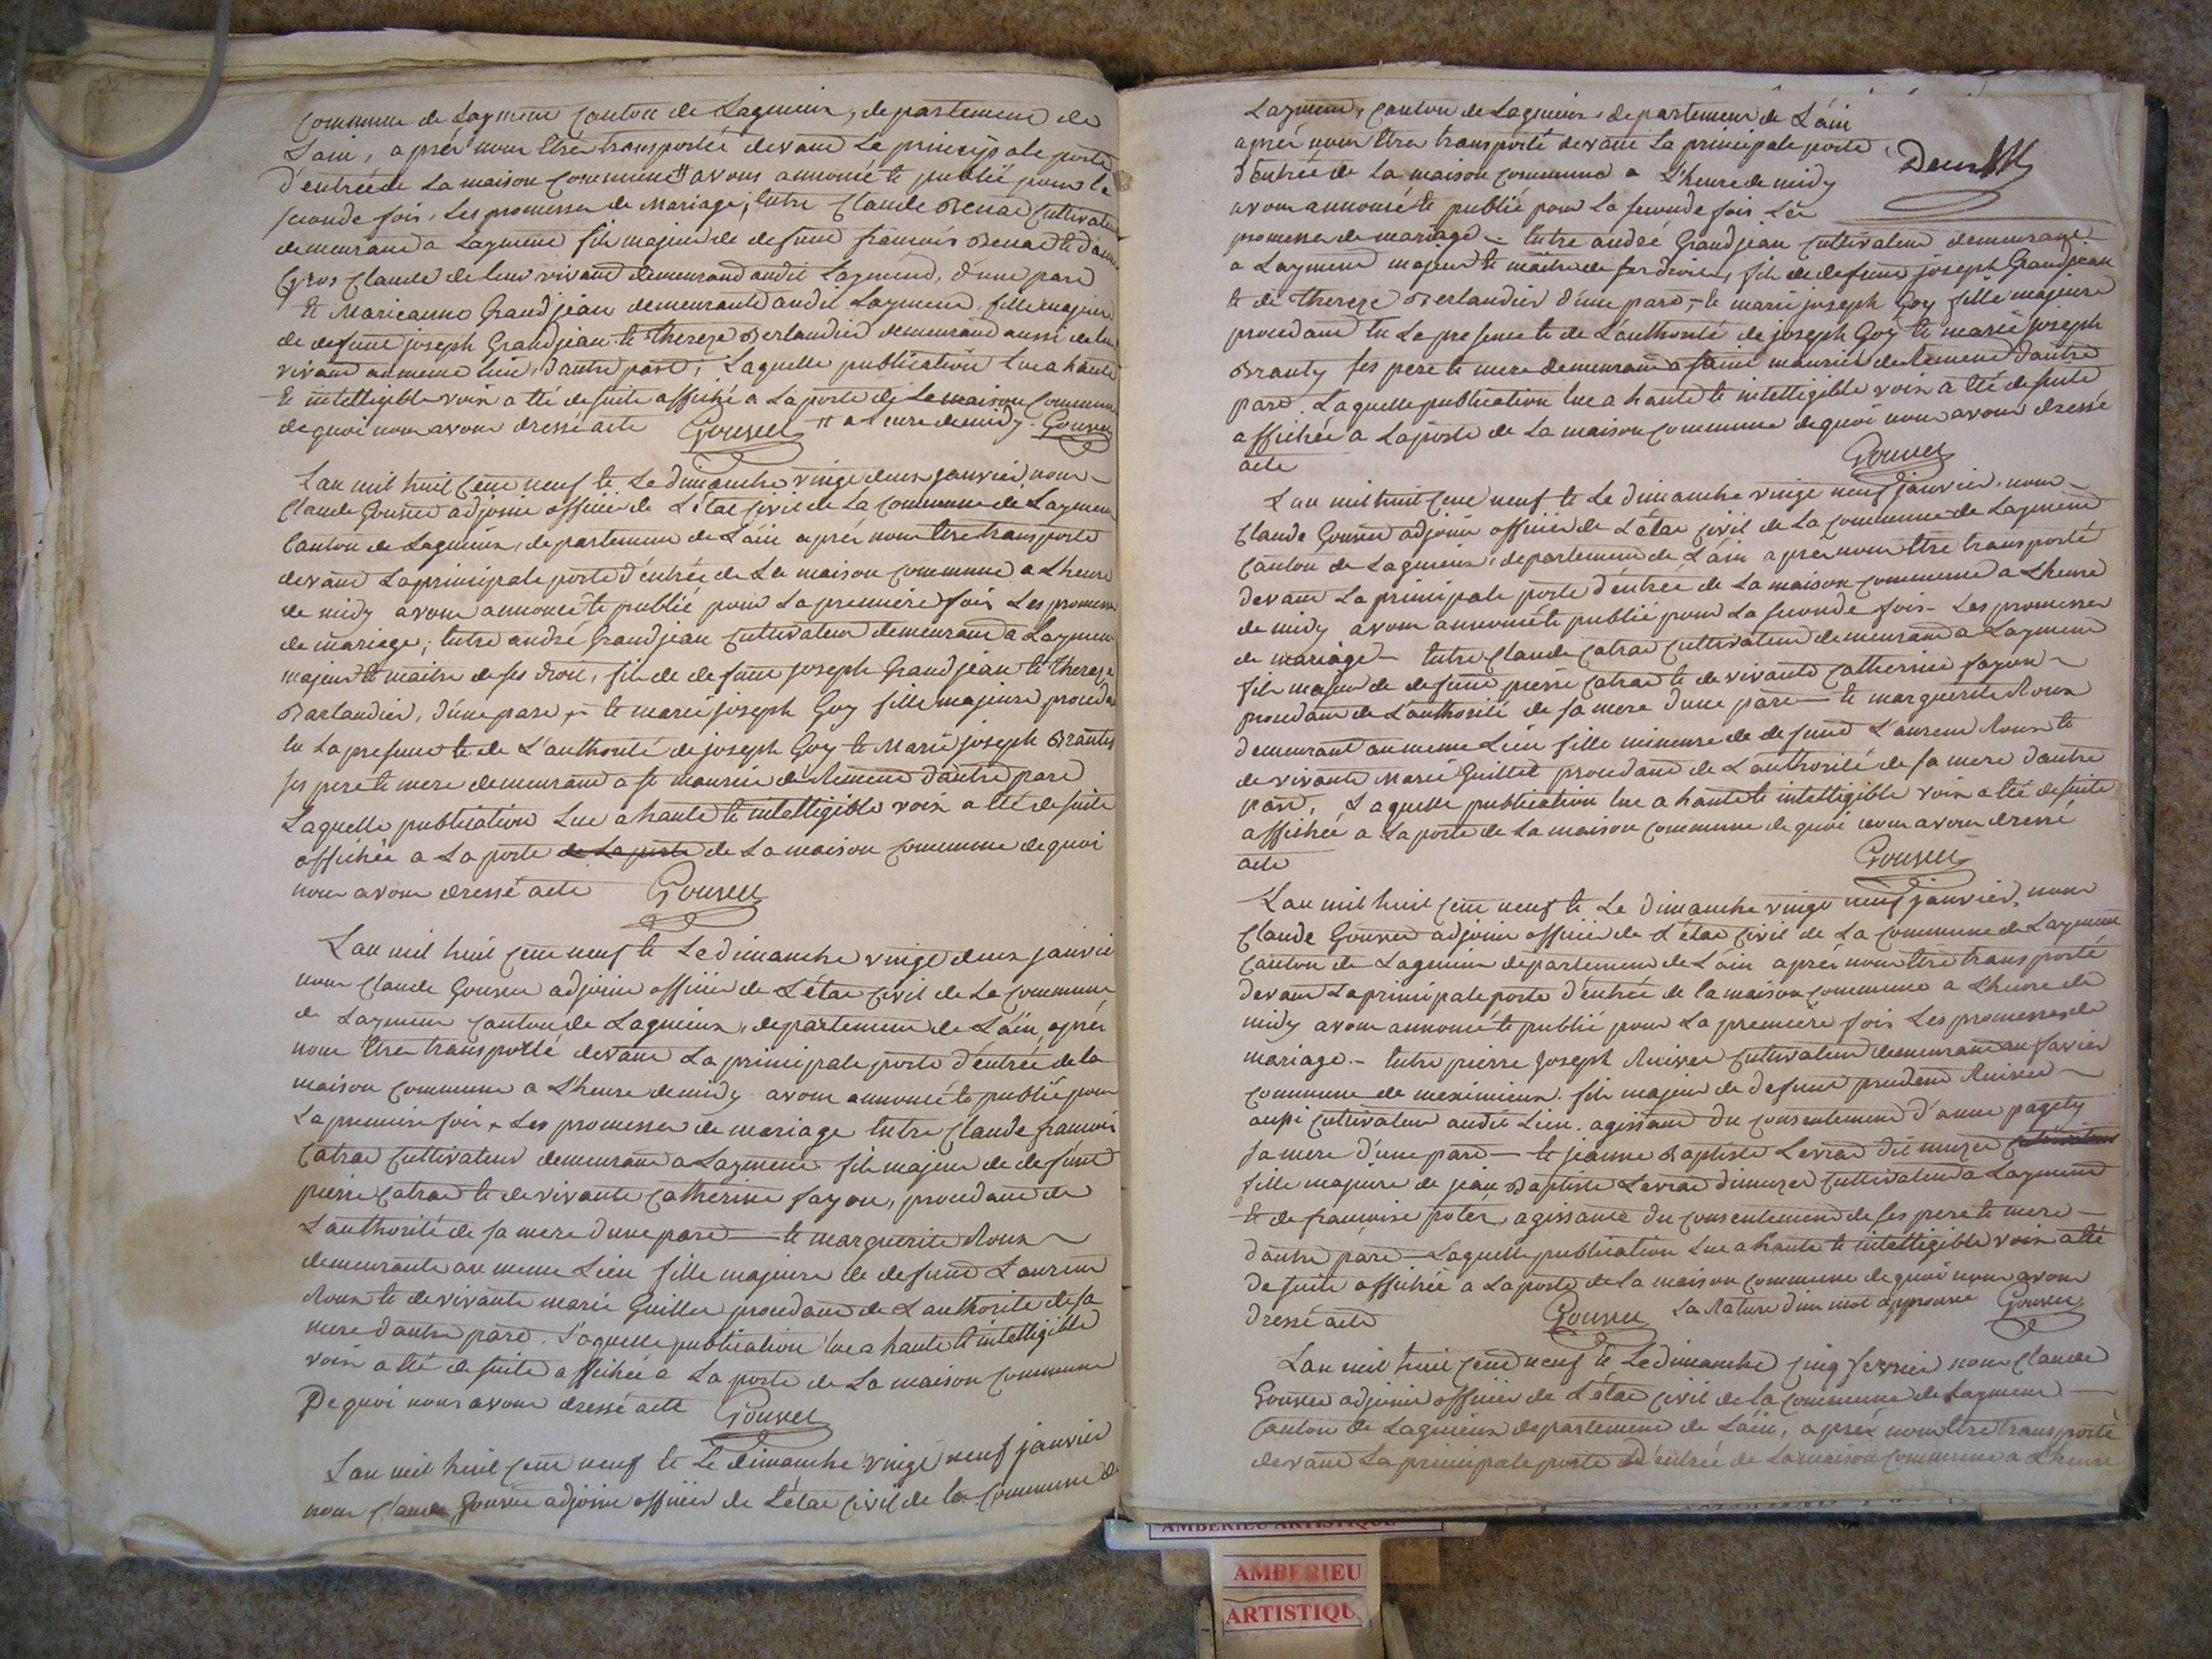 Commune de Laymens Canton de Lagnieux, departement de
L'ain, après nous être transportée devant La principale porte
d'entrée de La maison Commune # avons annoncé et publié pour la
seconde fois, Les promesses de Mariage; Entre Claude Benac Cultivateur
demeurand a Laymens fils majeur de defund francois Benac et d'anne
Gros Claude de leur vivant demeurand audit Laymend, d'une pard
et Marieanne Grandjean demeurante audit Laymens, fille majeure
de defunt joseph Grandjean et thereze Berlandier demeurand aussi de leur
vivand au meme lieu, d'autre pard; Laquelle publication Lue a haute
et intelligible voix a été de suite affiché a La porte de La maison Commune
de quoi nous avons dressé acte Gouvet # a l'eure de midy. Gouvet
L'an mil huit Cent neuf et Le dimanche vingt deux janvier, nous
Claude Gouvet adjoint officier de L'état Civil de La Commune de Laymens
Canton de Lagnieux, departement de L'ain après nous être transporté
devant La principale porte d'entrée de La maison Commune a L'heure
de midy avons annoncé et publié pour La premiere fois Les promesses
de mariage; Entre andré Grandjean Cultivateur demeurand a Laymens
majeur et maitre de ses droits, fils de defunt joseph Grandjean et thereze
Barlandier, d'une pard et marie joseph Goy fille majeure, procedant
En La presence et de L'authorité de joseph Goy et Marie joseph Branty
ses pere et mere demeurand a st maurice de Remens d'autre pard
Laquelle publication Lue a haute et intelligible voix a été de suite
affichée a La porte de La porte de La maison Commune de quoi
nous avons dressé acte Gouvet
L'an mil huit Cent neuf et Le dimanche vingt deux janvier
nous Claude Gouvet adjoint officier de L'état Civil de La Commune
de Laymens Canton de Lagnieux, departement de L'ain, après
nous être transporté devant La principale porte d'entrée de la
maison Commune a L'heure de midy avons annoncé et publié pour
La premiere fois, Les promesses de mariage Entre Claude francois
Catrat Cultivateur demeurant a Laymens fils majeur de defunt
pierre Catrat et de vivante Catherine fayon, procedant de
L'authorité de sa mere d'une pard et marguerite Roux
demeurante au meme Lieu fille majeure de defund Laurent
Roux et de vivante marie Guillet procedant de L'authorité de sa
mere d'autre pard. Laquelle publication lue a haute et intelligible
voix a été de suite affichée a La porte de La maison Commune
De quoi nous avons dressé acte Gouvet
L'an mil huit Cent neuf et Le dimanche vingt neuf janvier
nous Claude Gouvet adjoint officier de L'état Civil de la Commune de
Laymens, Canton de Lagnieux, departement de L'ain
après nous être transporté devant La principale porte
d'entrée de La maison Commune a L'heure de midy
avons annoncé et publié pour La seconde fois Les
promesses de mariage - Entre andré Grandjean Cultivateur demeurant
a Laymens majeur et maitre de ses droits, fils de defunt joseph Grandjean
et de thereze Berlandier d'une pard, et marie joseph Goy fille majeure
procedant En La presence et de L'authorité de joseph Goy et marie joseph
Branty ses pere et mere demeurant a saint maurice de Remens d'autre
pard. Laquelle publication lue a haute et intelligible voix a été de suite
affichée a La porte de La maison Commune de quoi nous avons dressé
acte Gouvet
L'an mil huit Cent neuf et Le dimanche vingt neuf janvier, nous
Claude Gouvet adjoint officier de L'état Civil de La Commune de Laymens
Canton de Lagnieux, departement de L'ain après nous être transporté
devant La principale porte d'entrée de La maison Commune a L'heure
de midy avons annoncé et publié pour La seconde fois - Les promesses
de mariage - Entre Claude Catrat Cultivateur demeurand a Laymens
fils majeur de defunt pierre Catrat et de vivante Catherine fayon
procedant de L'authorité de sa mere d'une pard et marguerite Roux
demeurant au meme Lieu fille mineure de defund Laurent Roux et
de vivante Marie Guillet procedant de L'authorité de sa mere d'autre
pard, Laquelle publication lue a haute et intelligible voix a été de suite
affichée a La porte de La maison Commune de quoi nous avons dressé
acte Gouvet
L'an mil huit Cent neuf et Le dimanche vingt neuf janvier, nous
Claude Gouvet adjoint officier de L'état Civil de La Commune de Laymens
Canton de Lagnieux departement de L'ain après nous être transporté
devant La principale porte d'entrée de la maison Commune a L'heure de
midy avons annoncé et publié pour La première fois Les promesses de
mariage - Entre pierre Joseph Cultivateur demeurant au
Commune de meximieux. fils majeur de defunt prudend
aussi Cultivateur audit Lieu. agissant du Consentement d'anne
sa mere d'une pard - et jeanne Baptiste Levrat dit
fille majeure de jean Baptiste Levrat Cultivateur a Laymens
et de francoise agissante du Consentement de ses pere et mere
d'autre pard - Laquelle publication Lue a haute et intelligible voix a été
de suite affichée a La porte de La maison Commune de quoi nous avons
dressé acte Gouvet La Rature d'un mot approuvé Gouvet
L'an mil huit Cent neuf et Le dimanche Cinq fevrier nous Claude
Gouvet adjoint officier de L'état Civil de la Commune de Laymens
Canton de Lagnieux departement de L'ain, après nous être transporté
devant La principale porte d'entrée de La maison Commune a L'heure
AMBERIEU ARTISTIQUE
AMBERIEU
ARTISTIQU